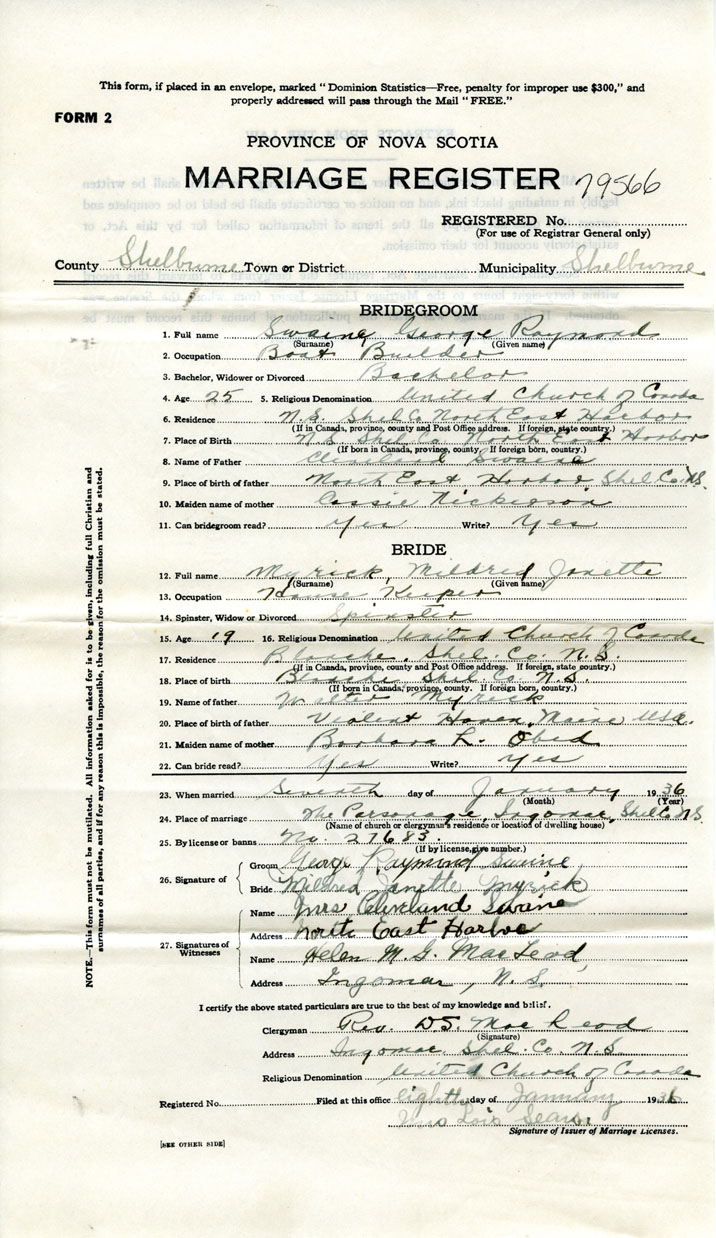 This form, if placed in an envelope, marked "Dominion Statistics—Free, penalty for improper use $300," and
properly addressed will pass through the Mail "FREE."
FORM 2
PROVINCE OF NOVA SCOTIA
MARRIAGE REGISTER 79566
REGISTERED No.
(For use of Registrar General only)
County Shelburne Town or District Municipality Shelburne
BRIDEGROOM
1. Full name Swaine, George Raymond
(Surname) (Given name)
2. Occupation Boat Builder
3. Bachelor, Widower or Divorced Bachelor
4. Age 25 5. Religious Denomination United Church of Canada
6. Residence N.S. Shel Co North East Harbor
(If in Canada, province, county and Post Office address. If foreign, state country.)
7. Place of Birth N.S. Shel Co. North East Harbor
(If born in Canada, province, county. If foreign born, country.)
8. Name of Father Cleveland Swaine
9. Place of birth of father North East Harbor Shel Co. N.S.
10. Maiden name of mother Cassie Nickerson
11. Can bridegroom read? Yes Write? Yes
BRIDE
12. Full name Myrick, Mildred Janette
(Surname) (Given name)
13. Occupation House Keeper
14. Spinster, Widow or Divorced Spinster
15. Age 19 16. Religious Denomination United Church of Canada
17. Residence Blanche, Shel. Co. N.S.
(If in Canada, province, county and Post Office address. If foreign, state country.)
18. Place of birth Blanche Shel Co. N.S.
(If born in Canada, province, county. If foreign born, country.)
19. Name of father Walter Myrick
20. Place of birth of father Violent Haven, Maine USA.
21. Maiden name of mother Barbara L. Obed
22. Can bride read? Yes Write? Yes
23. When married Seventh day of January 1936
(Month) (Year)
24. Place of marriage The Parsonage, Ingomar, Shel Co N.S.
(Name of church or clergyman's residence or location of dwelling house)
25. By license or banns No. 27683.
(If by license, give number.)
26. Signature of
Groom George Raymond Swaine
Bride Mildred Janette Myrick
27. Signatures of Witnesses
Name Mrs Cleveland Swaine
Address North East Harbor
Name Helen M. G. MacLeod
Address Ingomar, N.S.
I certify the above stated particulars are true to the best of my knowledge and belief.
Clergyman Rev. D.S. MacLeod
(Signature)
Address Ingomar Shel. Co. N.S.
Religious Denomination United Church of Canada
Registered No. Filed at this office eighth day of January 1936
Mrs Lois Sears
Signature of Issuer of Marriage Licenses.
[SEE OTHER SIDE]
NOTE.—This form must not be mutilated. All information asked for is to be given, including full Christian and
surnames of all parties, and if for any reason this is impossible, the reason for the omission must be stated.